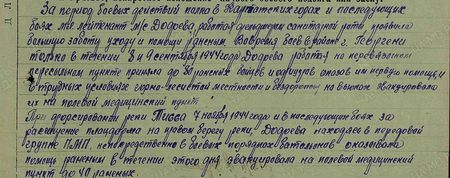 За период боевых действий полка в Карпатских горах и последующих
боях мл. лейтенант м/с Додеева, работая командиром санитарной роты, проявила
большую заботу уходу и помощи раненым. Вовремя боев в районе г. Георгени
только в течении 8 и 9 сентября 1944 года Додеева работая на перевязочном
пересыльном пункте приняла до 80 раненых бойцев и офицеров оказав им первую помощь, и
в трудных условиях горно-лесистой местности и бездорожья на вьюках эвакуировала
их на полевой медицинский пункт.
При форсировании реки Тисса 7 ноября 1944 года и в последующих боях за
расширение плацдарма на правом берегу реки, Додеева находясь в передовой
группе ПМП, непосредственно в боевых порядках батальонов оказывала
помощь раненым в течении этого дня эвакуировала на полевой медицинский
пункт до 40 раненых.